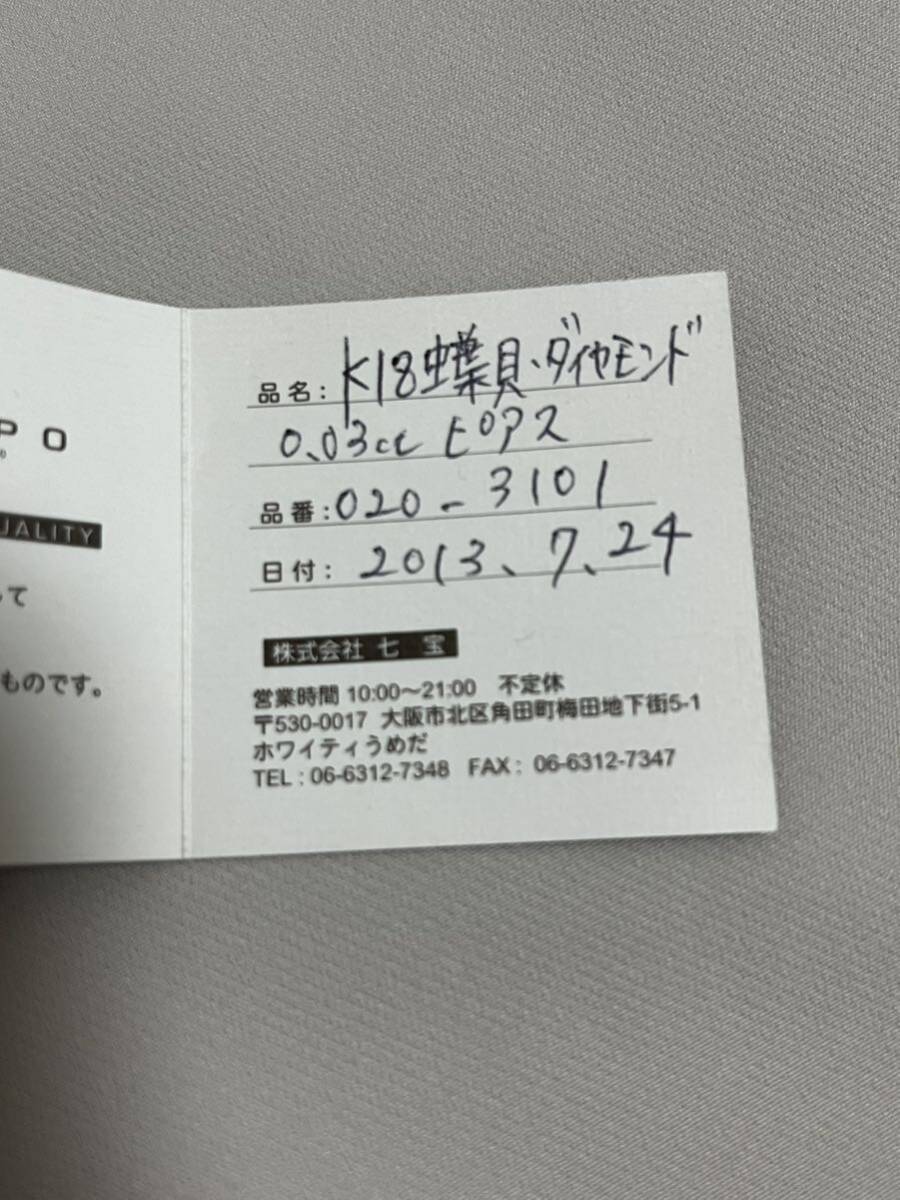 PO
UALITY
って
ものです。
品名: K18蝶貝・ダイヤモンド
0.03ct ピアス
品番: 020-3101
日付: 2013、7、24
株式会社 七 宝
営業時間 10:00~21:00 不定休
〒530-0017 大阪市北区角田町梅田地下街5-1
ホワイティうめだ
TEL : 06-6312-7348 FAX : 06-6312-7347